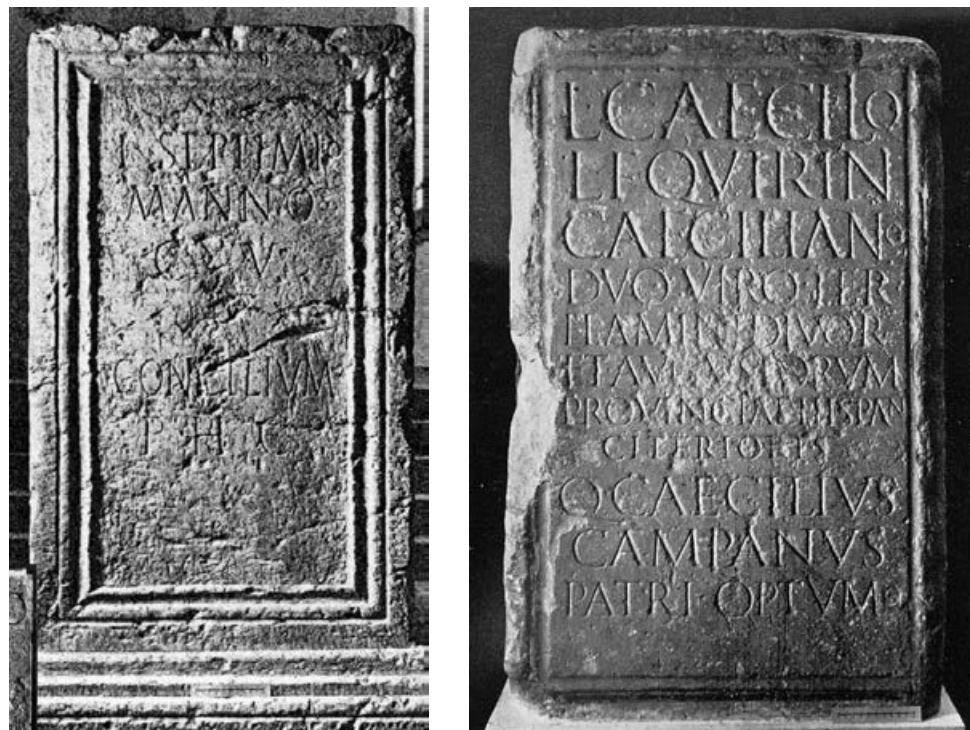 MANNO
C V
CONCILIVM
P H C
L CAECILIO
L F QVIRIN
CAECILIANO
DVO VIRO TER
FLAMINI DIVOR
ET AVGVSTORVM
PROVINCIAE HISPAN
CITERIORIS
Q CAECILIVS
CAMPANVS
PATRI OPTVMO